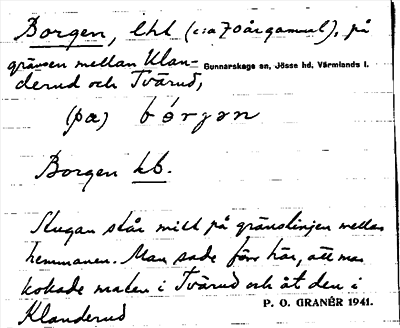 Borgen, lht (c:a 70årgammal), på
gränsen mellan Klan-
Gunnarskogs sn, Jösse hd, Värmlands l.
derud och Tvärud,
(pæ) bórjan
Borgen kb.
Stugan står mitt på gränslinjen mellan
hemmanen. Man sade förr här, att man
kokade maten i Tvärud och åt den i
Klanderud
P. O. GRANÉR 1941.